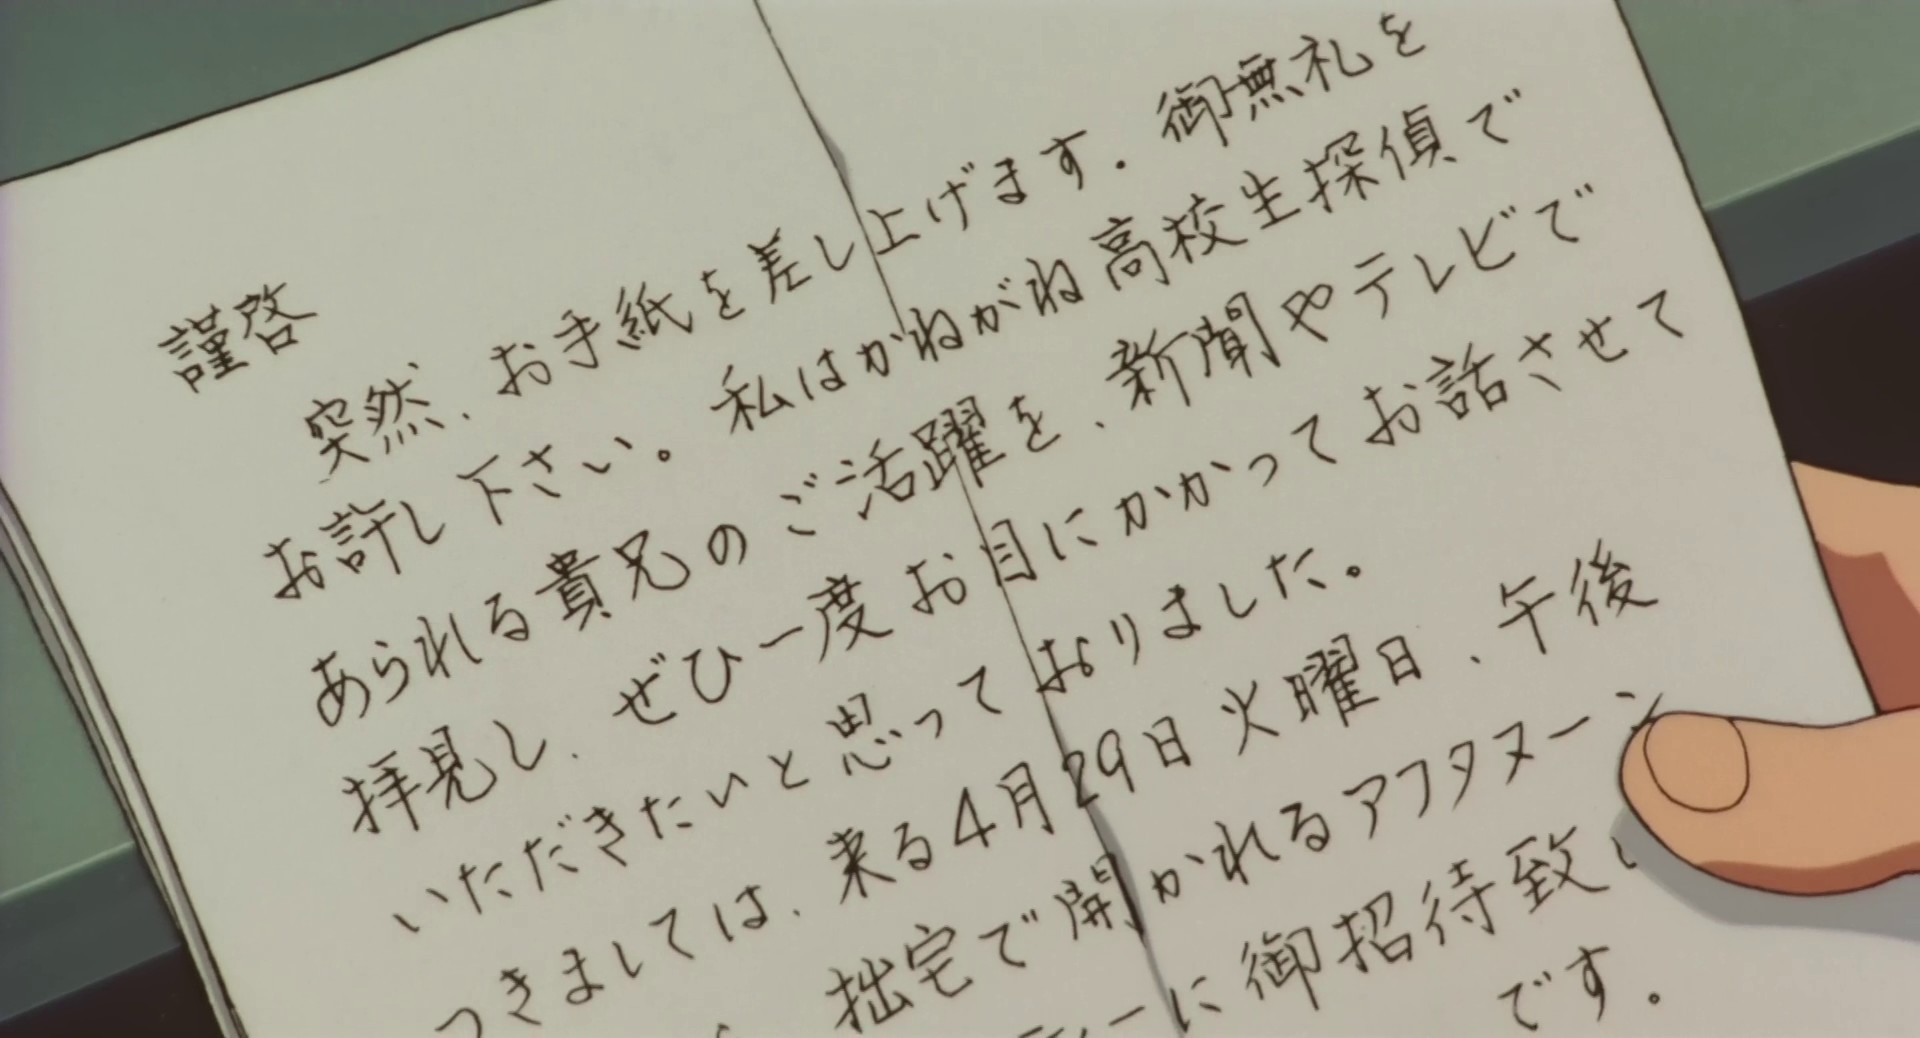 謹啓
突然、お手紙を差し上げます。御無礼を
お許し下さい。私はかねがね高校生探偵で
あられる貴兄のご活躍を、新聞やテレビで
拝見し、ぜひ一度お目にかかってお話させて
いただきたいと思っておりました。
つきましては、来る4月29日火曜日、午後
拙宅で開かれるアフタヌーン
ティーに御招待致し
です。